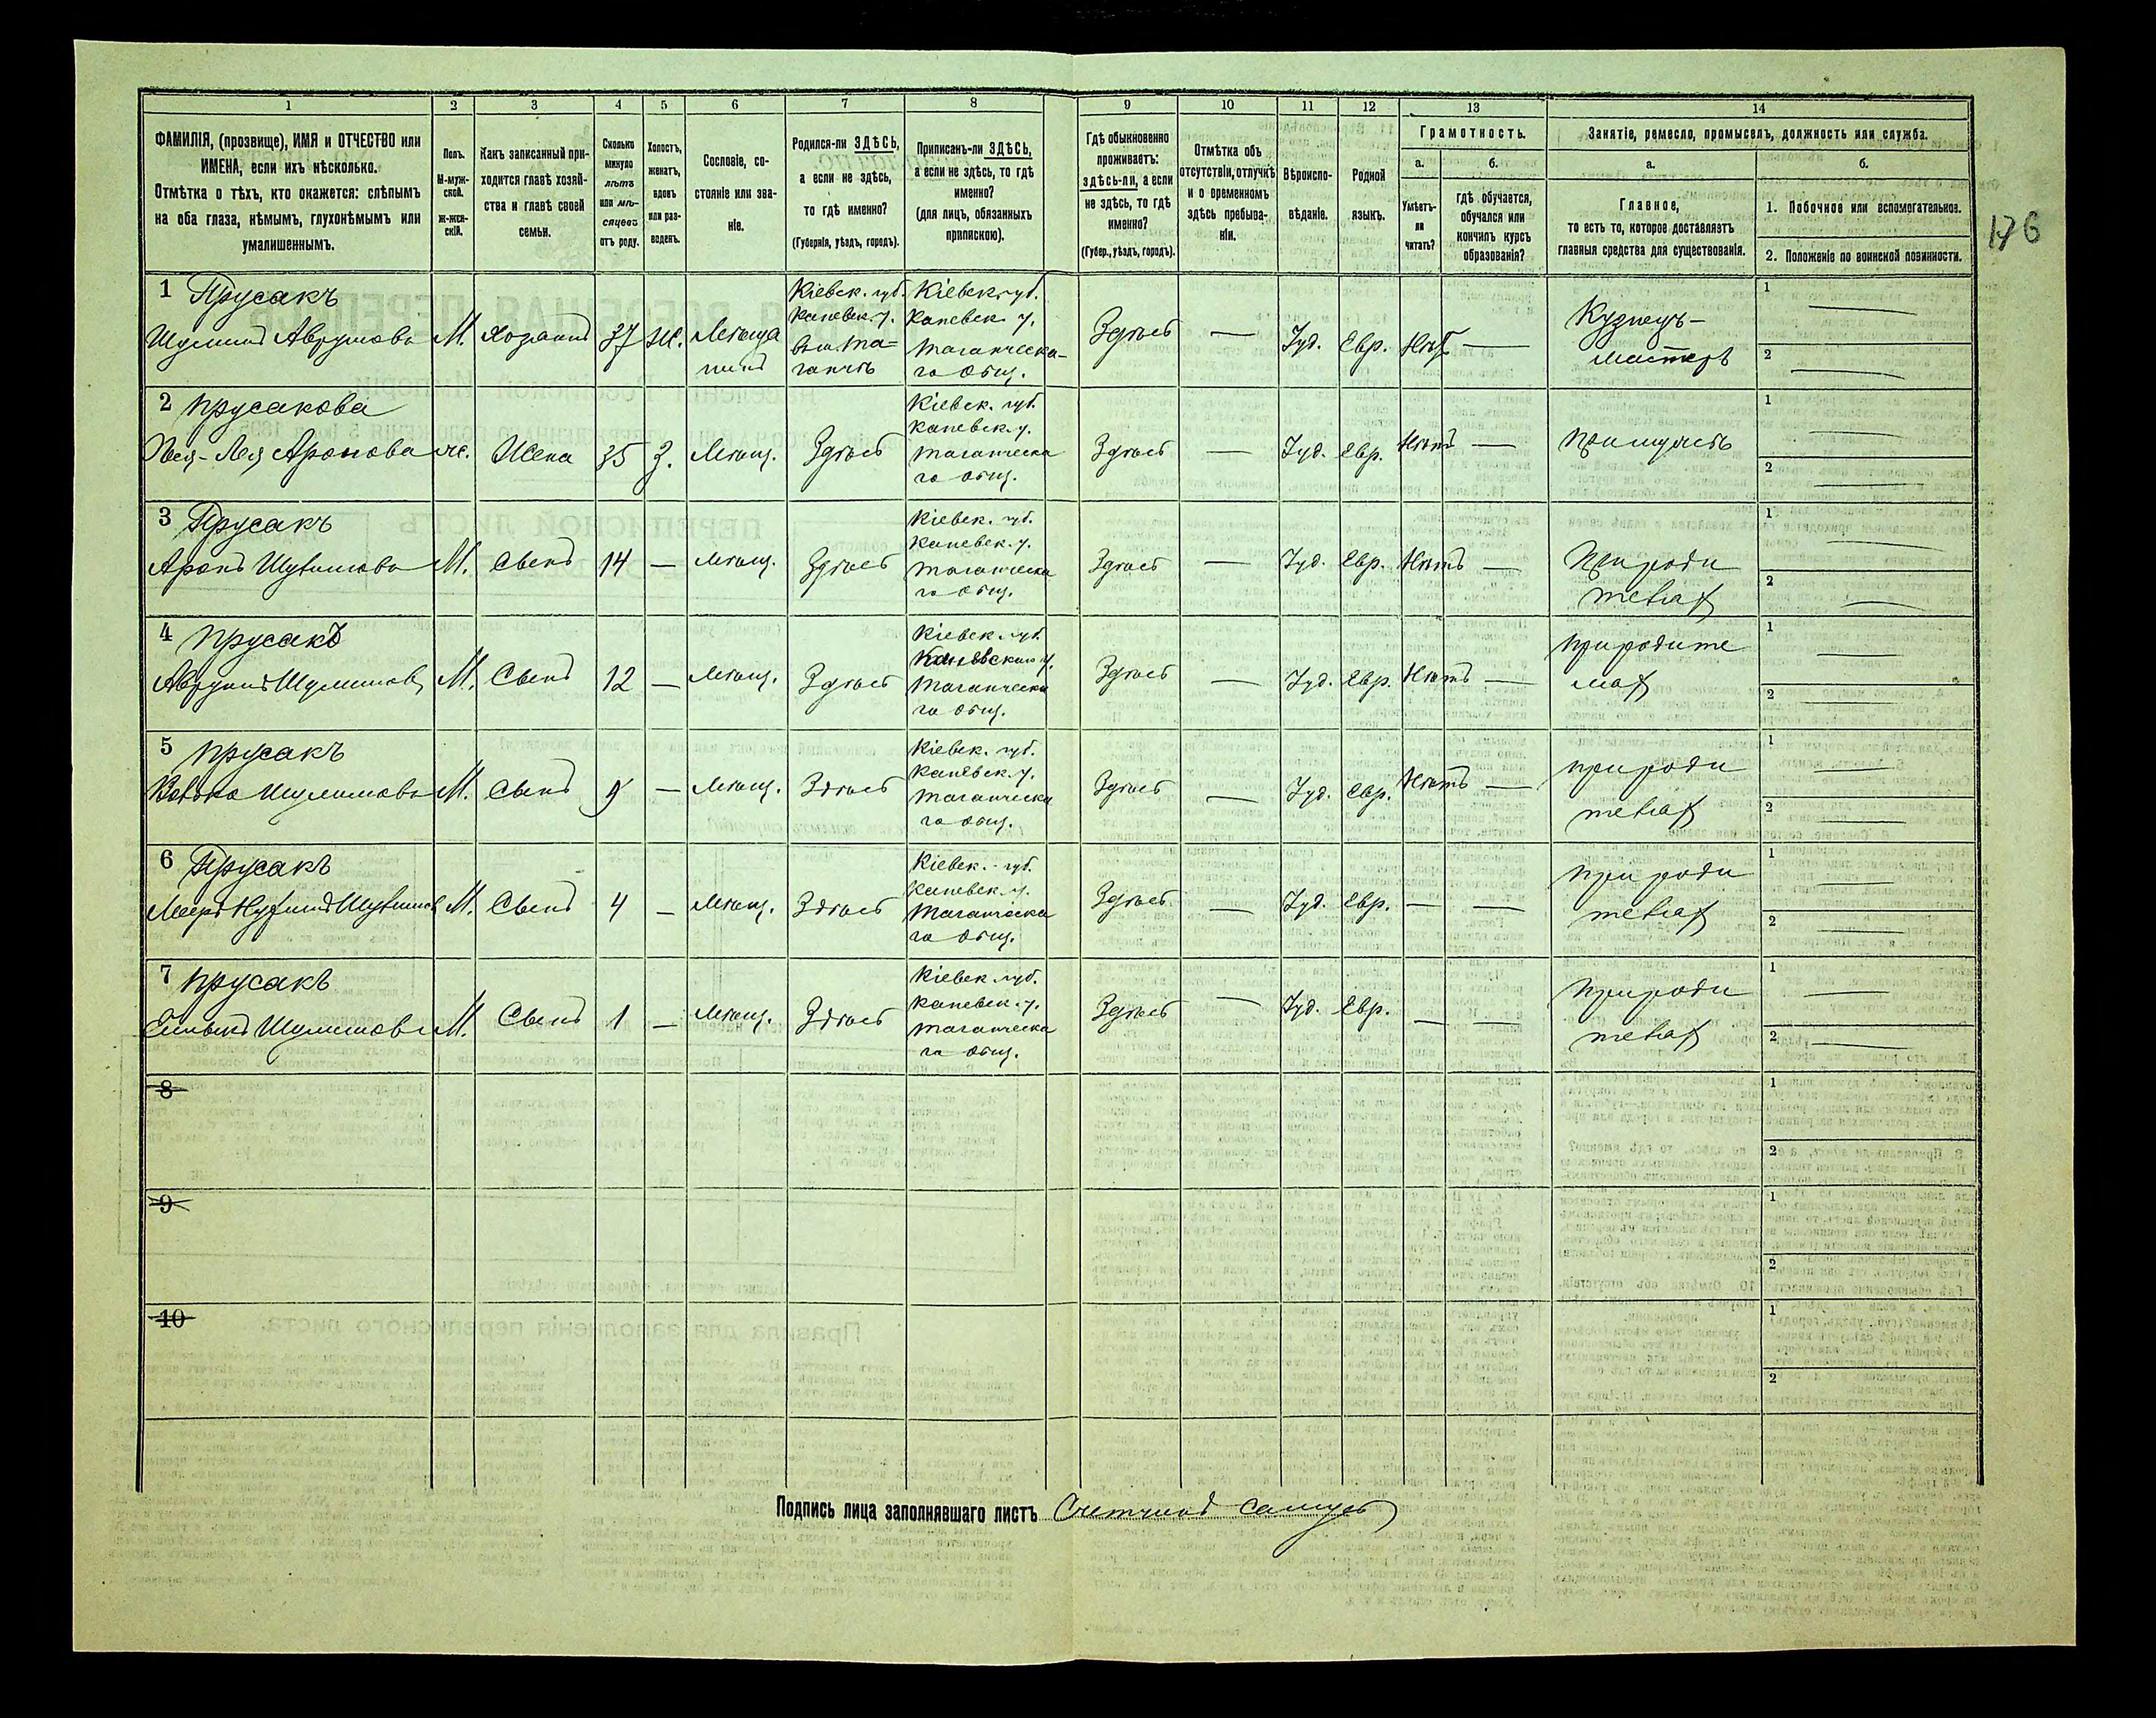 1 2 3 4 5 6 7 8 9 10 11 12 13 14
ФАМИЛІЯ, (прозвище), ИМЯ и ОТЧЕСТВО или
ИМЕНА, если ихъ нѣсколько.
Отмѣтка о тѣхъ, кто окажется: слѣпымъ
на оба глаза, нѣмымъ, глухонѣмымъ или
умалишеннымъ.
Полъ.
М-муж-
ской.
Ж-жен-
скій.
Какъ записанный при-
ходится главѣ хозяй-
ства и главѣ своей
семьи.
Сколько
минуло
лѣтъ
или мѣ-
сяцевъ
отъ роду.
Холостъ,
женатъ,
вдовъ
или раз-
веденъ.
Сословіе, со-
стояніе или зва-
ніе.
Родился-ли ЗДѢСЬ,
а если не здѣсь,
то гдѣ именно?
(Губернія, уѣздъ, городъ).
Приписанъ-ли ЗДѢСЬ,
а если не здѣсь, то гдѣ
именно?
(для лицъ, обязанныхъ
припискою).
Гдѣ обыкновенно
проживаетъ:
здѣсь-ли, а если
не здѣсь, то гдѣ
именно?
(Губер., уѣздъ, городъ).
Отмѣтка объ
отсутствіи, отлучкѣ
и о временномъ
здѣсь пребыва-
ніи.
Вѣроиспо-
вѣданіе.
Родной
языкъ.
Грамотность.
а.
Умѣетъ-
ли
читать?
б.
гдѣ обучается,
обучался или
кончилъ курсъ
образованія?
Занятіе, ремесло, промыселъ, должность или служба.
а.
Главное,
то есть то, которое доставляетъ
главныя средства для существованія.
б.
1. Побочное или вспомогательное.
2. Положеніе по воинской повинности.
176
1 Прусакъ
Шулимъ Аврумовъ
М.
Хозяинъ
37
Ж.
Мѣща
нинъ
Кіевск. губ.
Каневск. у.
Кіевск. губ.
Каневск. у.
Таганческа-
го Общ.
Здѣсь
—
Іуд.
Евр.
Нѣтъ
—
Кузнецъ-
мастеръ
1 —
2 —
2 Прусакова
Аронова
ж.
Жена
35
З.
Мѣщ.
Здѣсь
Кіевск. губ.
Каневск. у.
Таганческа
го общ.
Здѣсь
—
Іуд.
Евр.
Нѣтъ
—
При мужѣ
1 —
2 —
3 Прусакъ
Аронъ Шулимовъ
М.
Сынъ
14
—
Мѣщ.
Здѣсь
Кіевск. губ.
Каневск. у.
Таганческа
го Общ.
Здѣсь
—
Іуд.
Евр.
Нѣтъ
—
При роди
теляхъ
1 —
2 —
4 Прусакъ
Аврумъ Шулимовъ
М.
Сынъ
12
—
Мѣщ.
Здѣсь
Кіевск. губ.
Каневскаго у.
Таганческа
го Общ.
Здѣсь
—
Іуд.
Евр.
Нѣтъ
—
При родите
ляхъ
1 —
2 —
5 Прусакъ
Шулимовъ
М.
Сынъ
9
—
Мѣщ.
Здѣсь
Кіевск. губ.
Каневск. у.
Таганческа
го Общ.
Здѣсь
—
Іуд.
Евр.
Нѣтъ
—
При роди
теляхъ
1 —
2 —
6 Прусакъ
Шулимов
М.
Сынъ
4
—
Мѣщ.
Здѣсь
Кіевск. губ.
Каневск. у.
Таганческа
го Общ.
Здѣсь
—
Іуд.
Евр.
—
—
При роди
теляхъ
1 —
2 —
7 Прусакъ
Шулимовъ
М.
Сынъ
1
—
Мѣщ.
Здѣсь
Кіевск. губ.
Каневск. у.
Таганческа
го Общ.
Здѣсь
—
Іуд.
Евр.
—
—
При роди
теляхъ
1 —
2 —
8
1
2
9
1
2
10
1
2
Подпись лица заполнявшаго листъ Счетчикъ